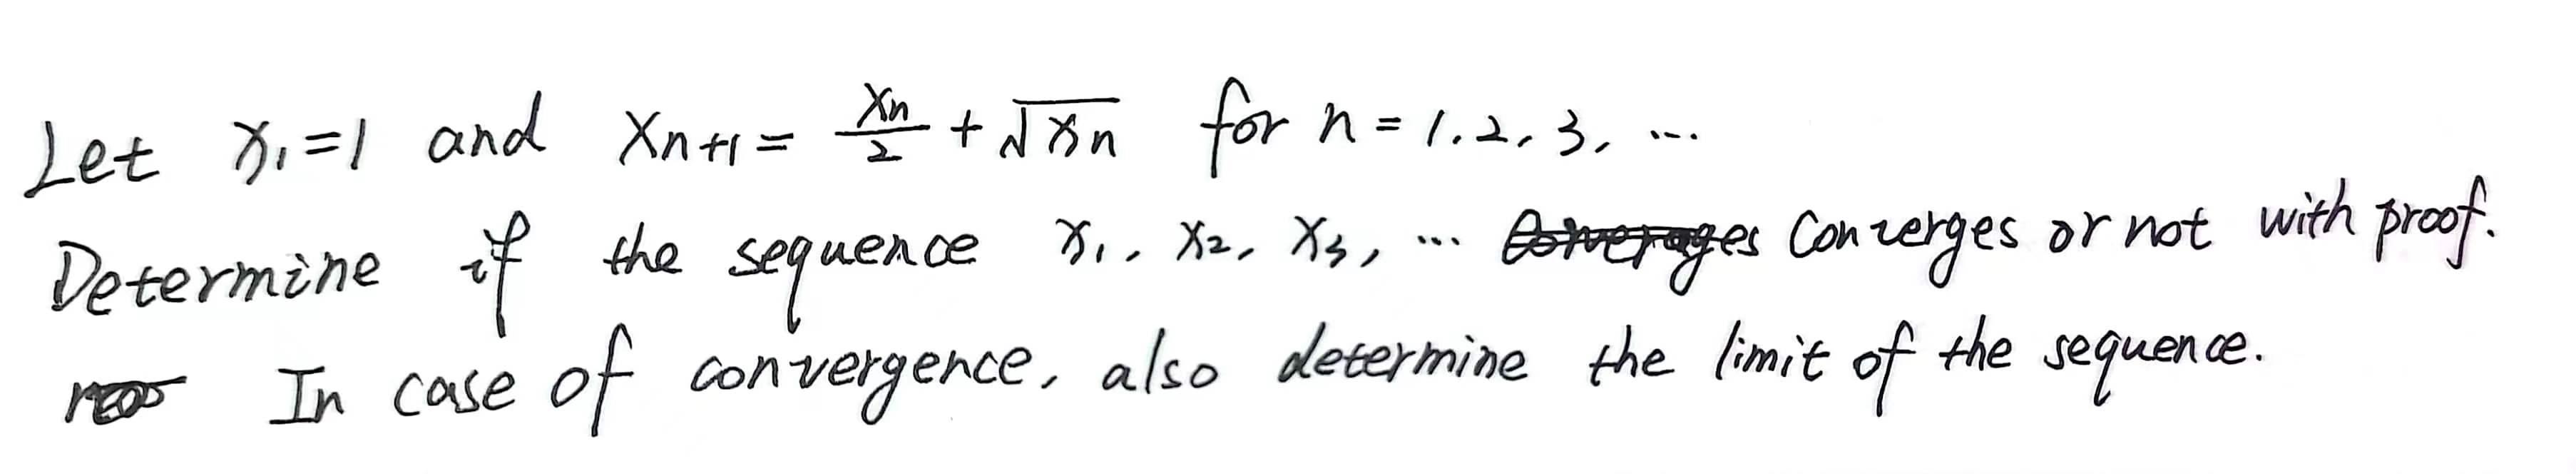 Let x₁=1 and xₙ₊₁ = xₙ/2 + √xₙ for n = 1, 2, 3, ...
Determine if the sequence x₁, x₂, x₃, ... Converges or not with proof.
In case of convergence, also determine the limit of the sequence.